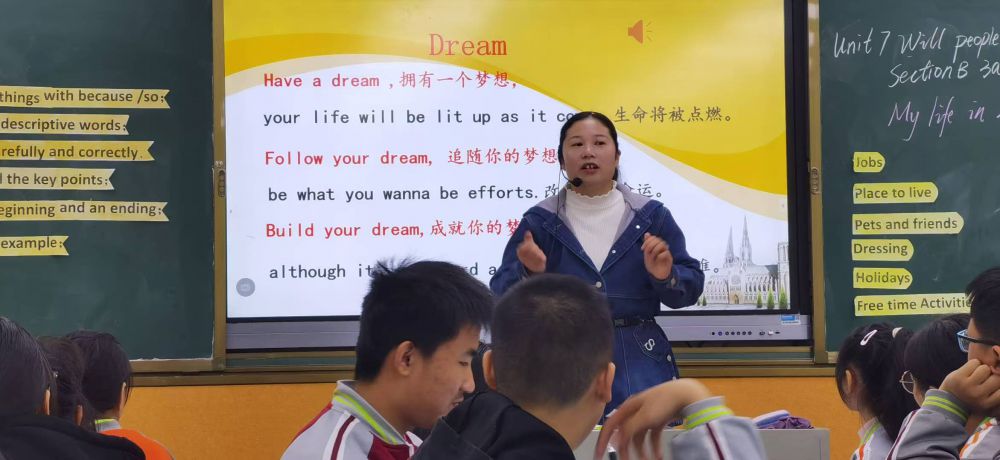 things with because /so;
descriptive words;
and correctly.
the key points;
and an ending;
example;
Dream
Have a dream ,拥有一个梦想,
your life will be lit up as it 生命将被点燃。
Follow your dream, 追随你的梦想
be what you wanna be efforts. 运。
Build your dream,成就你的梦
although
Unit 7 Will people
Section B 3a
My life in
Jobs
Place to live
Pets and friends
Dressing
Holidays
Free time Activities